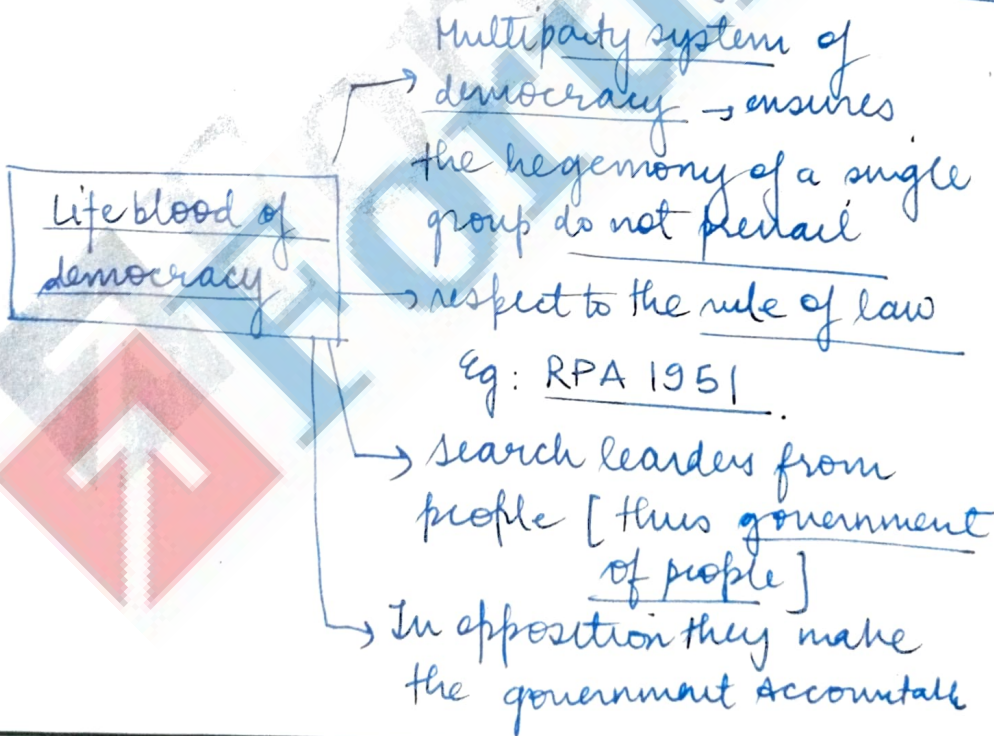 Life blood of
democracy
Multiparty system of
democracy → ensures
the hegemony of a single
group do not prevail
→ respect to the rule of law
Eg: RPA 1951.
→ search learders from
people [thus government
of people]
→ In opposition they make
the government Accountable